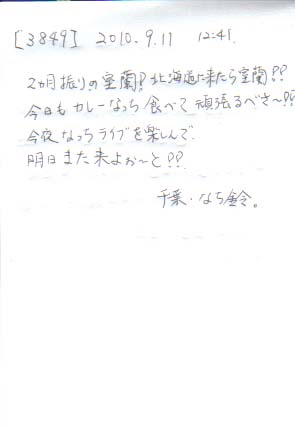 [3849] 2010.9.11 12:41.
2ヵ月振りの室蘭!北海道に来たら室蘭??
今日もカレーなっち食べて頑張るべさ〜??
今夜なっちライブを楽しんで
明日また来よぉ〜と??
千葉・なち鈴。